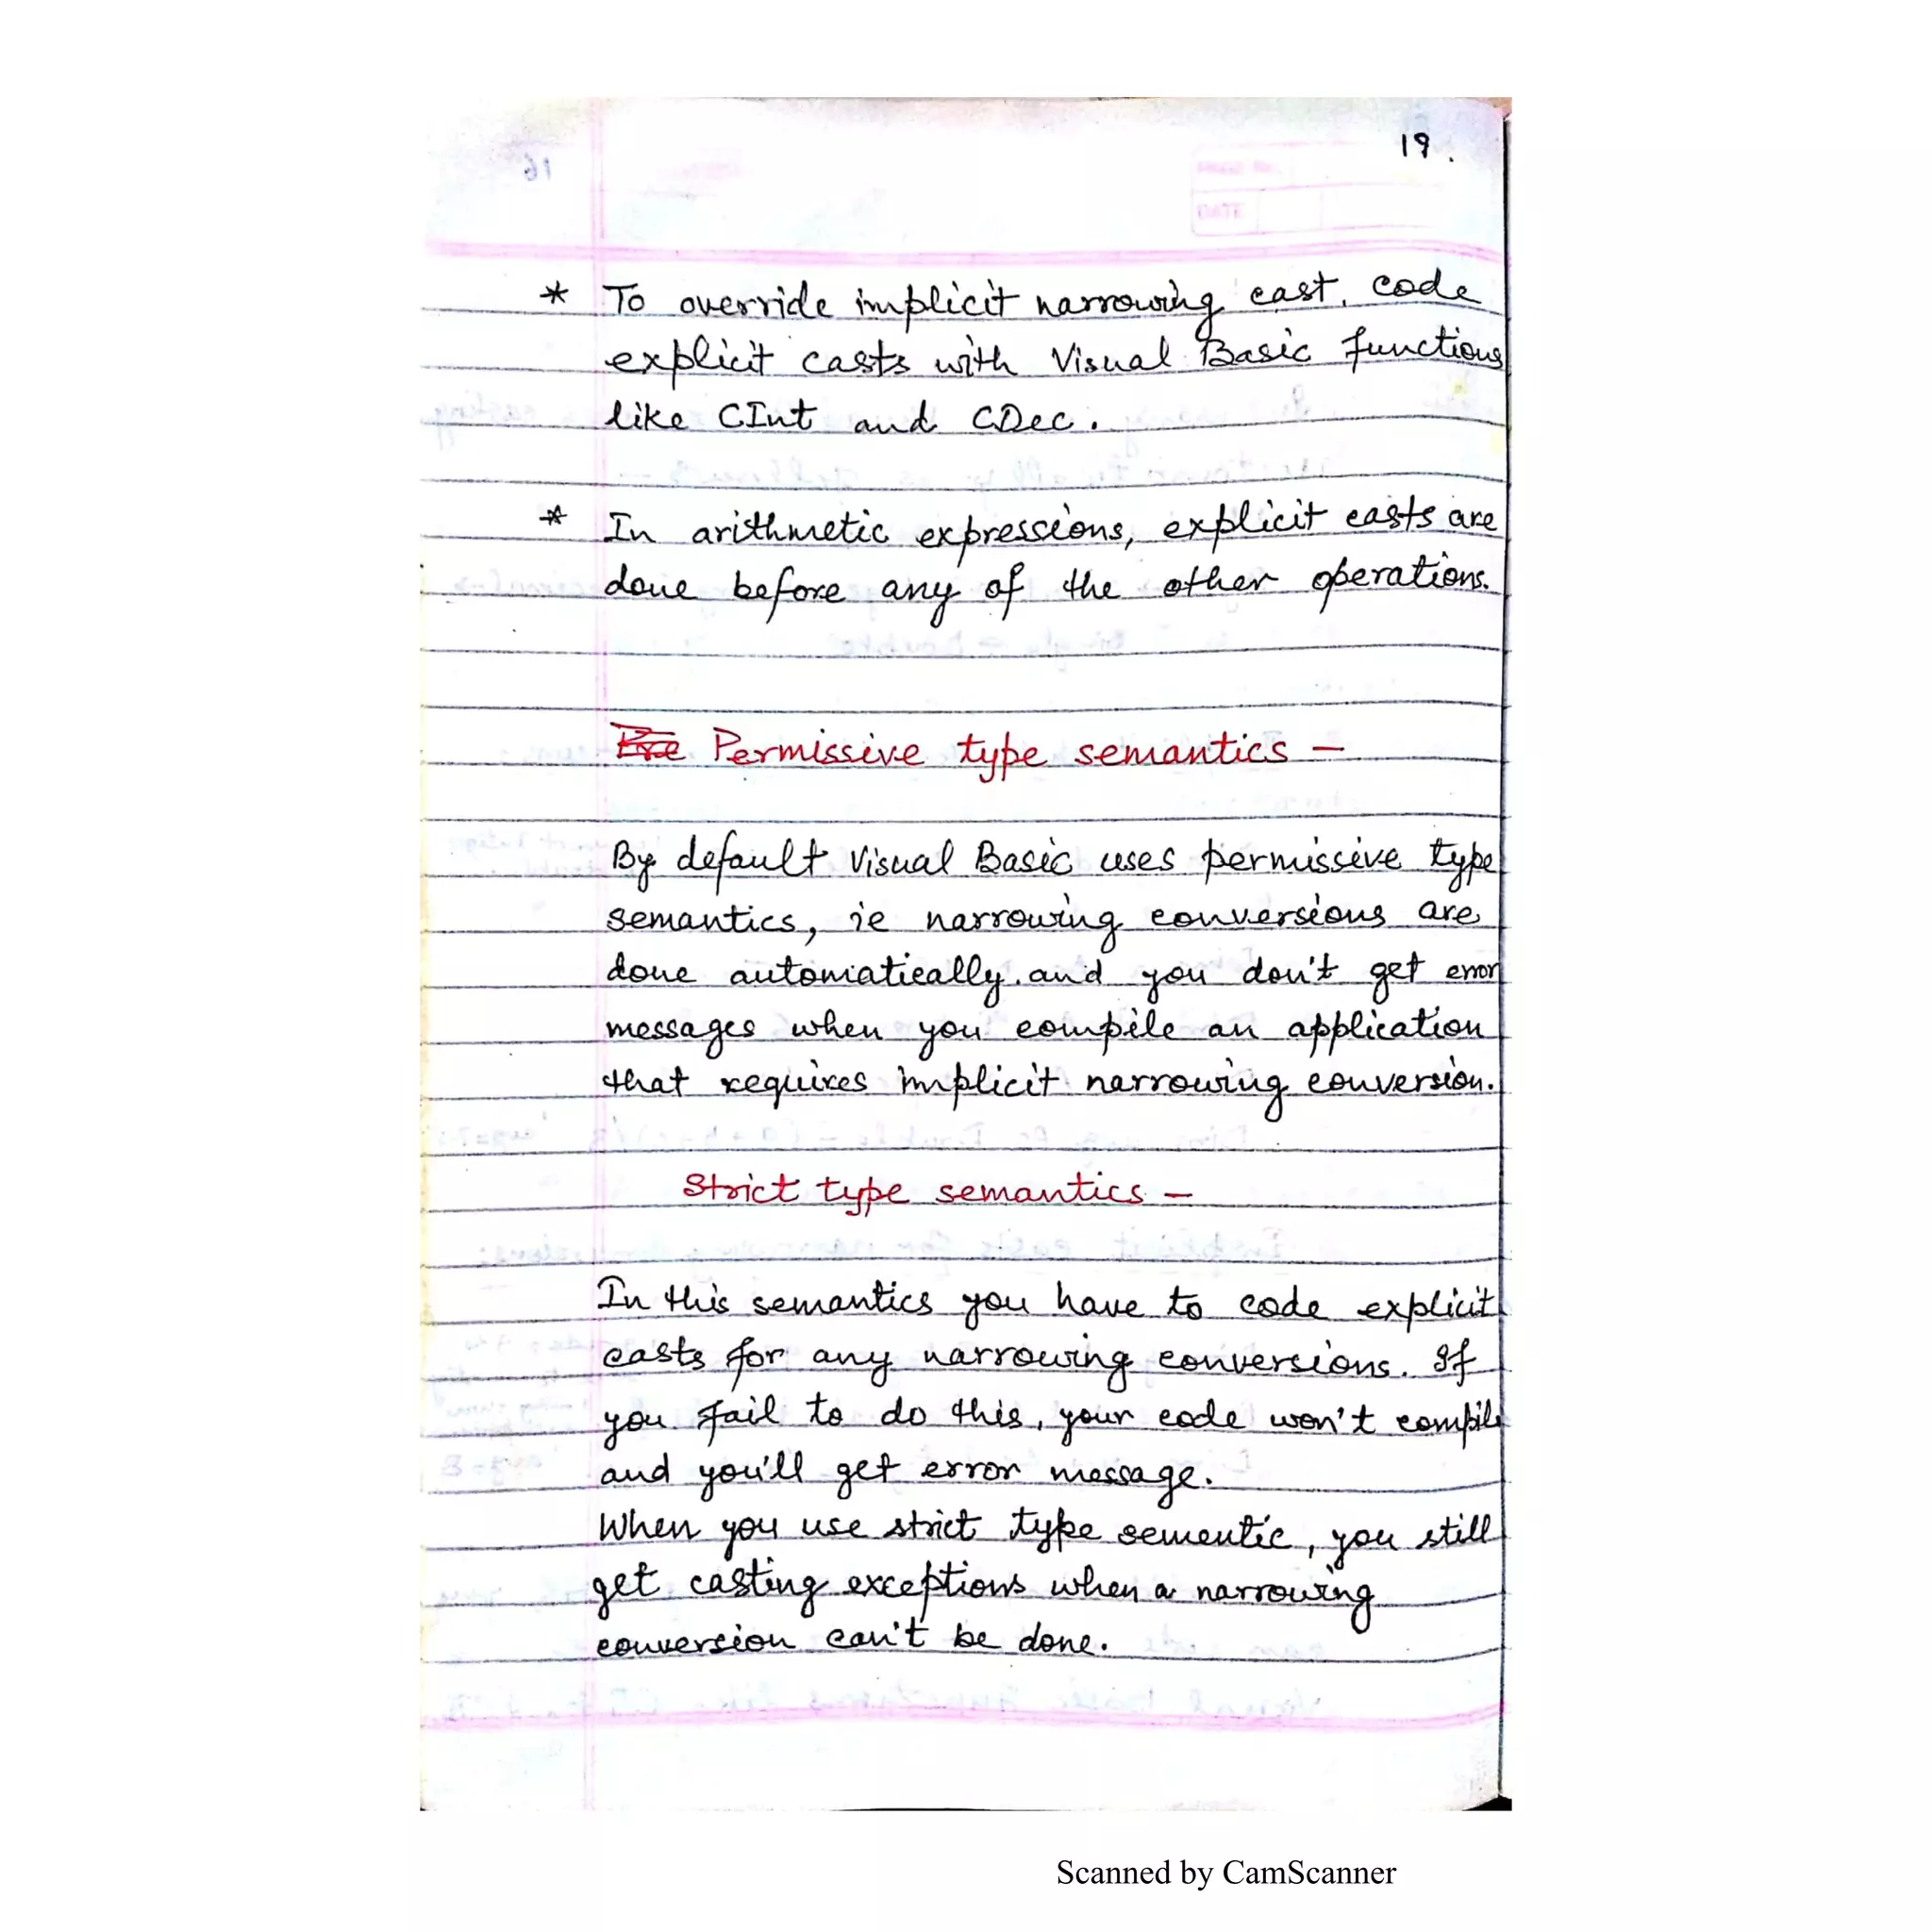 19.
* To override implicit narrowing cast, code
explicit casts with Visual Basic functions
like CInt and CDec.
* In arithmetic expressions, explicit casts are
done before any of the other operations.
Permissive type semantics –
By default Visual Basic uses permissive type
semantics, ie narrowing conversions are
done automatically and you don't get error
messages when you compile an application
that requires implicit narrowing conversion.
Strict type semantics –
In this semantics you have to code explicit
casts for any narrowing conversions. If
you fail to do this, your code won't compile
and you'll get error message.
When you use strict type sementic, you still
get casting exceptions when a narrowing
conversion can't be done.
Scanned by CamScanner